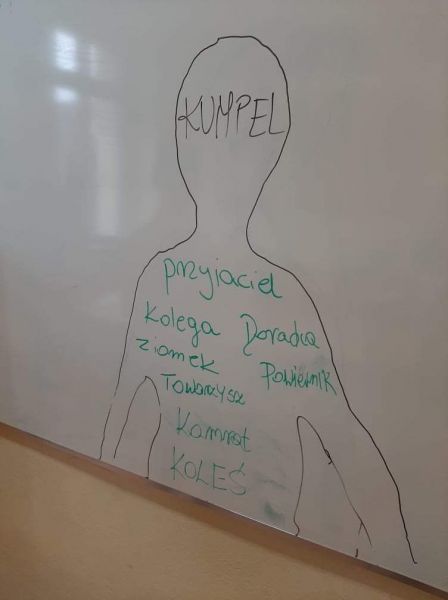 KUMPEL
przyjaciel
Kolega Doradca
Ziomek Powiernik
Towarzysz
Kamrat
KOLEŚ